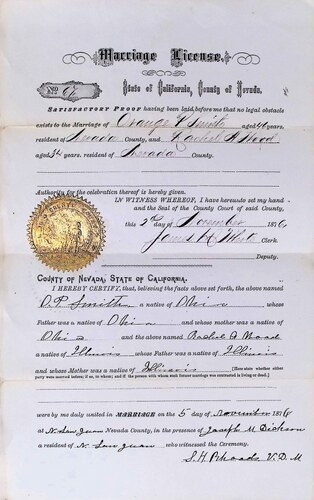 Marriage License.
No 62
State of California, County of Nevada.
SATISFACTORY PROOF having been laid before me that no legal obstacle
exists to the Marriage of Orange P Smith aged 41 years,
resident of Nevada County, and Rachel A Wood
aged 32 years, resident of Nevada County.
Authority for the celebration thereof is hereby given.
IN WITNESS WHEREOF, I have hereunto set my hand
and the Seal of the County Court of said County,
this 2d day of November 1876
James H White Clerk.
Deputy.
COUNTY OF NEVADA, STATE OF CALIFORNIA.
I HEREBY CERTIFY, that, believing the facts above set forth, the above named
O. P. Smith, a native of Ohio whose
Father was a native of Ohio and whose mother was a native of
Ohio and the above named Rachel A Wood
a native of Illinois whose Father was a native of Illinois
and whose Mother was a native of Illinois [Here state whether either
party were married before; if so, to whom; and if the person with whom such former marriage was contracted is living or dead.]
were by me duly united in MARRIAGE on the 5 day of November 1876
at N. San Juan Nevada County, in the presence of Joseph M Dickson
a resident of N. San Juan who witnessed the Ceremony.
S. H. Rhoads V. D. M